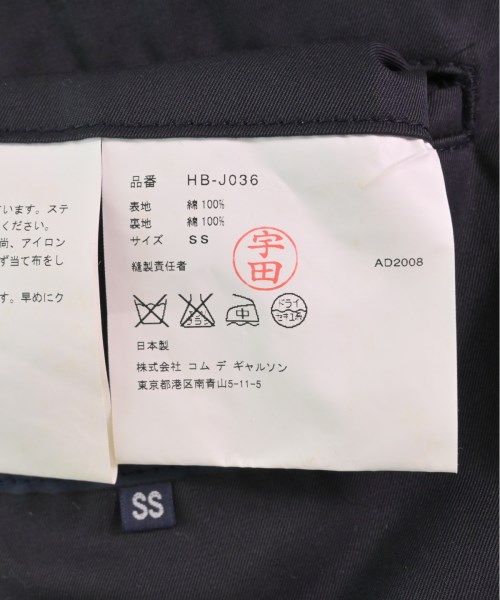 います。ステ
ください。
尚、アイロン
ず当て布をし
す。早めにク
品番 HB-J036
表地 綿100%
裏地 綿100%
サイズ SS
宇田
縫製責任者 AD2008
エンソサラシ
ドライ
日本製
株式会社 コム デ ギャルソン
東京都港区南青山5-11-5
SS